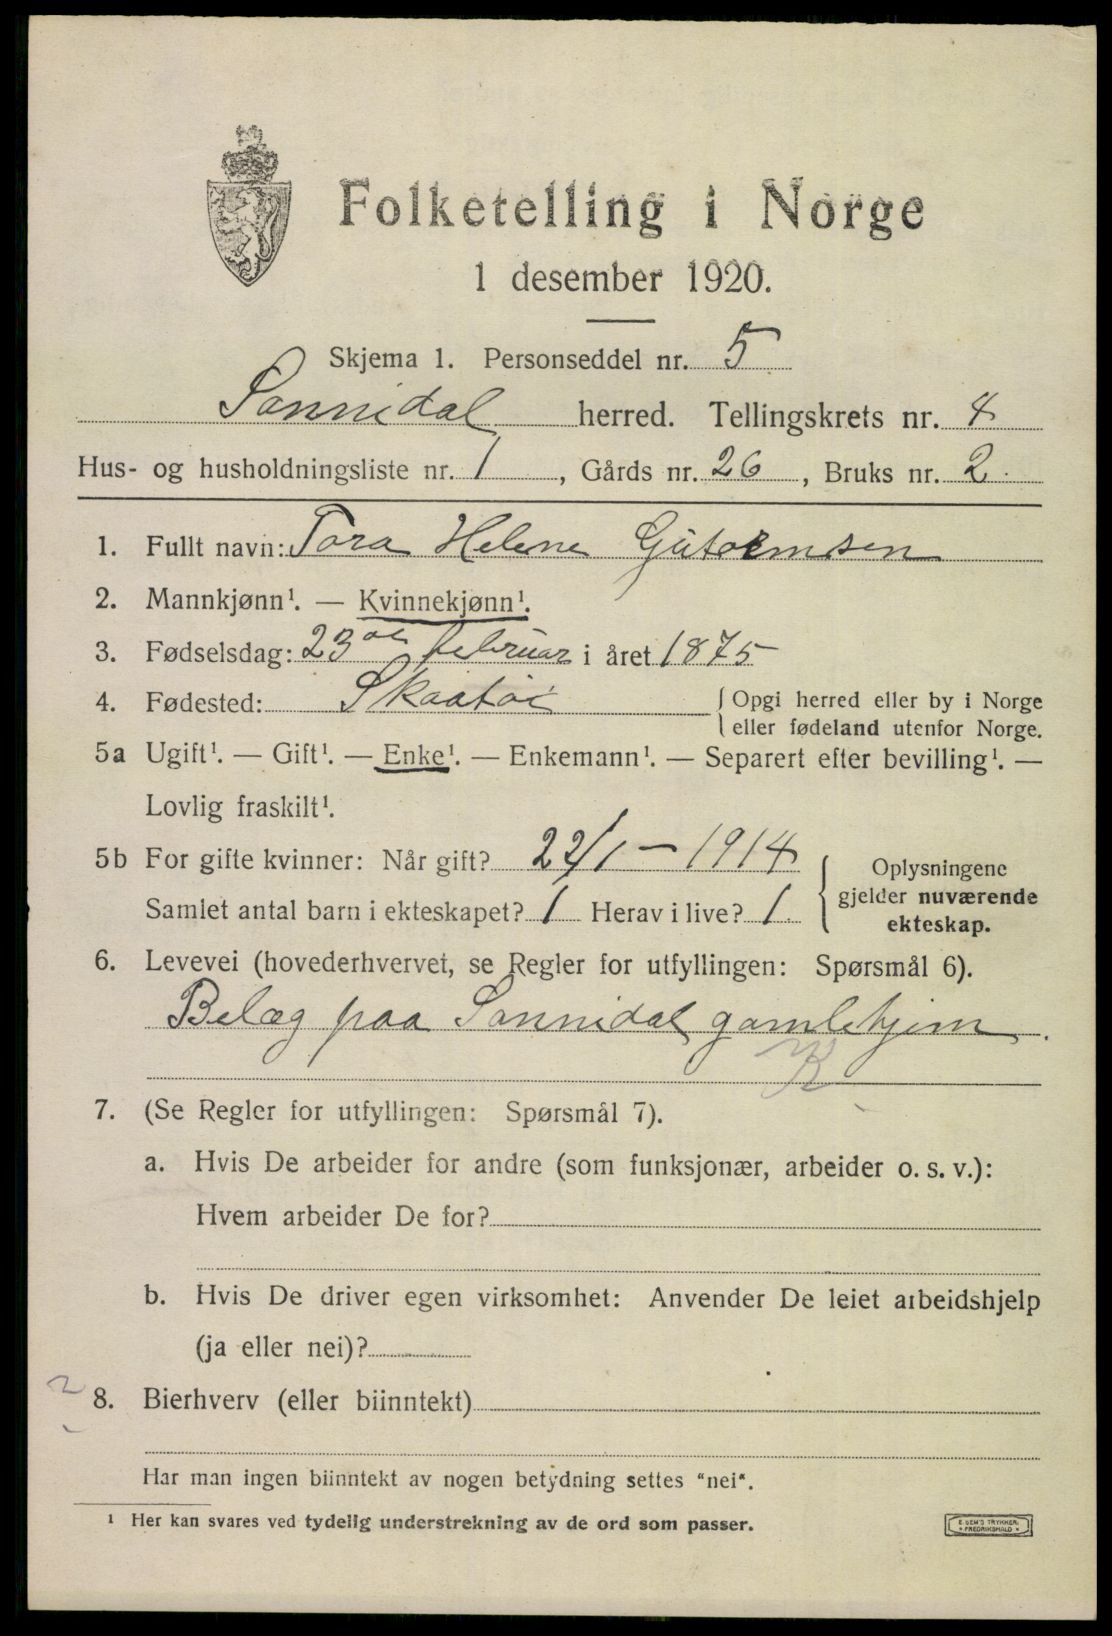 Folketelling i Norge
1 desember 1920.
Skjema 1. Personseddel nr. 5
Sannidal herred. Tellingskrets nr. 4
Hus- og husholdningsliste nr. 1, Gårds nr. 26, Bruks nr. 2
1. Fullt navn: Tora Helene Gutormsen
2. Mannkjønn¹. — Kvinnekjønn¹.
3. Fødselsdag: 23 februar i året 1875
4. Fødested: Skaatøi
{ Opgi herred eller by i Norge
eller fødeland utenfor Norge.
5a Ugift¹. — Gift¹. — Enke¹. — Enkemann¹. — Separert efter bevilling¹. —
Lovlig fraskilt¹.
5b For gifte kvinner: Når gift? 22/1 — 1914
Samlet antal barn i ekteskapet? 1 Herav i live? 1.
{ Oplysningene
gjelder nuværende
ekteskap.
6. Levevei (hovederhvervet, se Regler for utfyllingen: Spørsmål 6).
Belæg paa Sannidal gamlehjem.
K
7. (Se Regler for utfyllingen: Spørsmål 7).
a. Hvis De arbeider for andre (som funksjonær, arbeider o. s. v.):
Hvem arbeider De for?
b. Hvis De driver egen virksomhet: Anvender De leiet arbeidshjelp
(ja eller nei)?
2
8. Bierhverv (eller biinntekt)
Har man ingen biinntekt av nogen betydning settes "nei".
¹ Her kan svares ved tydelig understrekning av de ord som passer.
E. SEM'S TRYKKERI
* FREDRIKSHALD *